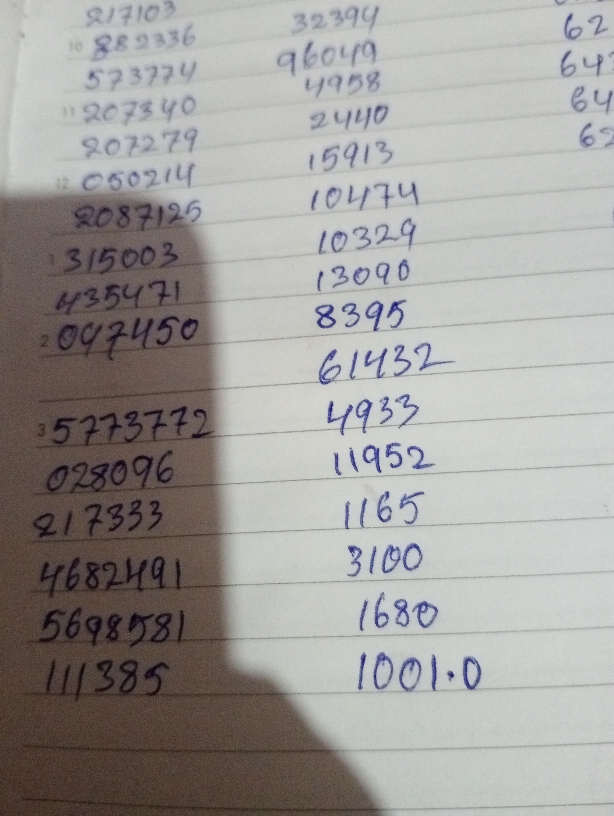 217103 32394
10 882336 96049 62
573774 4958 64
11 207340 2440 64
207279 15913 62
12 050214 10474
2087125 10329
1 315003 13090
435471 8395
2 097450 61432
3 5773772 4933
028096 11952
217333 1165
4682491 3100
5698581 1680
111385 1001.0